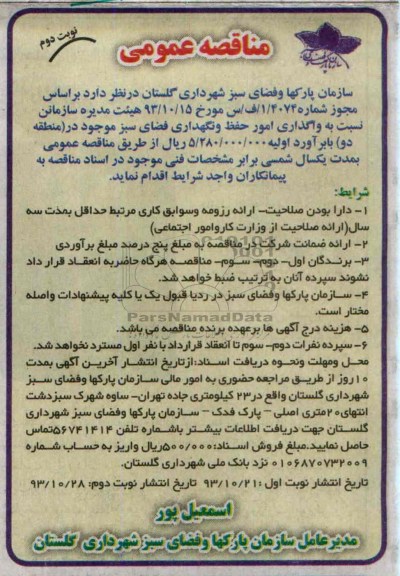 نوبت دوم
مناقصه عمومی
سازمان پارکها وفضای سبز شهرداری گلستان درنظر دارد براساس
مجوز شماره۱/۴۰۷۴/ف/س مورخ ۹۳/۱۰/۱۵ هیئت مدیره سازمانن
نسبت به واگذاری امور حفظ ونگهداری فضای سبز موجود در(منطقه
دو) بابرآورد اولیه۵/۲۸۰/۰۰۰/۰۰۰ ریال از طریق مناقصه عمومی
بمدت یکسال شمسی برابر مشخصات فنی موجود در اسناد مناقصه به
پیمانکاران واجد شرایط اقدام نماید.
شرایط:
۱- دارا بودن صلاحیت- ارائه رزومه وسوابق کاری مرتبط حداقل بمدت سه
سال(ارائه صلاحیت از وزارت کاروامور اجتماعی)
۲- ارائه ضمانت شرکت در مناقصه به مبلغ پنج درصد مبلغ برآوردی
۳- برندگان اول- دوم- سوم- مناقصه هرگاه حاضربه انعقاد قرار داد
نشوند سپرده آنان به ترتیب ضبط خواهد شد.
۴- سازمان پارکها وفضای سبز در ردیا قبول یک یا کلیه پیشنهادات واصله
مختار است.
ParsNamadData
۵- هزینه درج آگهی ها برعهده برنده مناقصه می باشد.
۶- سپرده نفرات دوم- سوم تا انعقاد قرارداد با نفر اول مسترد نخواهد شد.
محل ومهلت ونحوه دریافت اسناد:ازتاریخ انتشار آخرین آگهی بمدت
۱۰روز از طریق مراجعه حضوری به امور مالی سازمان پارکها وفضای سبز
شهرداری گلستان واقع در۲۳ کیلومتری جاده تهران- ساوه شهرک سبزدشت
انتهای۲۰متری اصلی – پارک فدک – سازمان پارکها وفضای سبز شهرداری
گلستان جهت دریافت اطلاعات بیشتر باشماره تلفن ۵۶۷۴۱۴۱۴تماس
حاصل نمایید.مبلغ فروش اسناد:۵۰۰/۰۰۰ریال واریز به حساب شماره
۰۱۰۶۸۷۰۷۳۲۰۰۹ نزد بانک ملی شهرداری گلستان.
تاریخ انتشار نوبت اول :۹۳/۱۰/۲۱ تاریخ انتشار نوبت دوم: ۹۳/۱۰/۲۸
اسمعیل پور
مدیرعامل سازمان پارکها وفضای سبز شهرداری گلستان